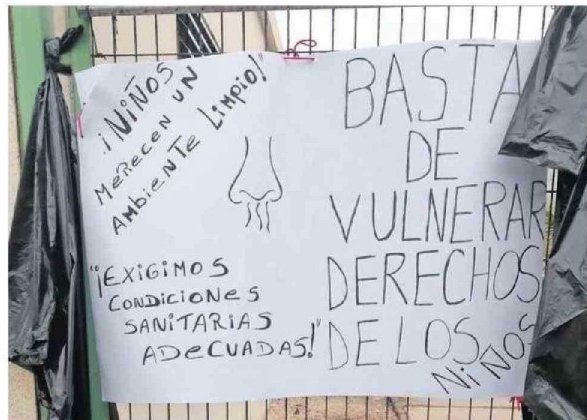 ¡NiÑOS
MeReCEN UN
AMbieNTe LiMPiO!"
"¡EXiGiMOS
CONDiCiONeS
SANiTARiAS
ADeCUADAS!"
BASTA
DE
VULNERAR
DERECHOS
DE LOS
NiÑOS